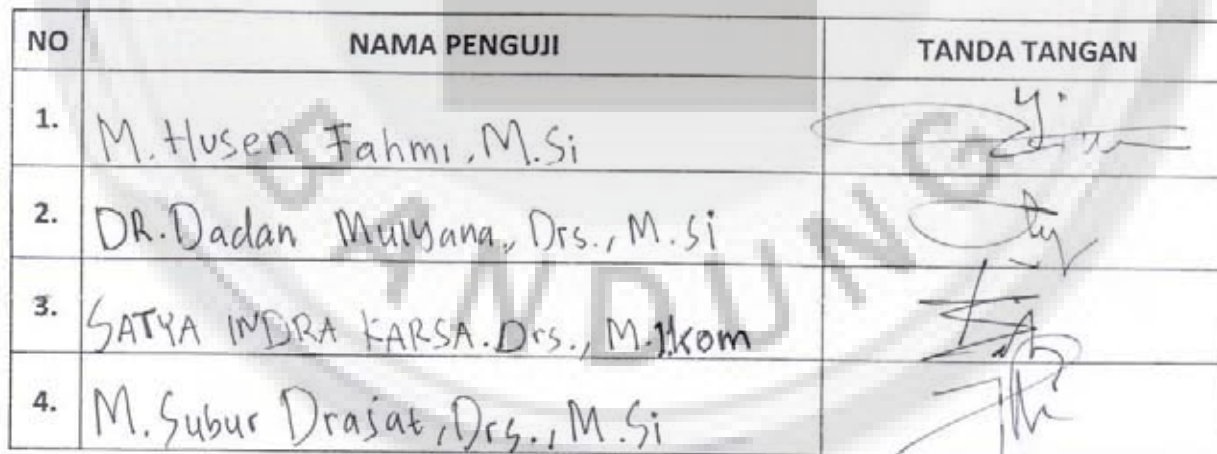 NO NAMA PENGUJI TANDA TANGAN
1. M. Husen Fahmi, M.Si
2. DR. Dadan Mulyana, Drs., M.Si
3. SATYA INDRA KARSA. Drs., M.Ikom
4. M. Subur Drajat, Drs., M.Si
BANDUNG